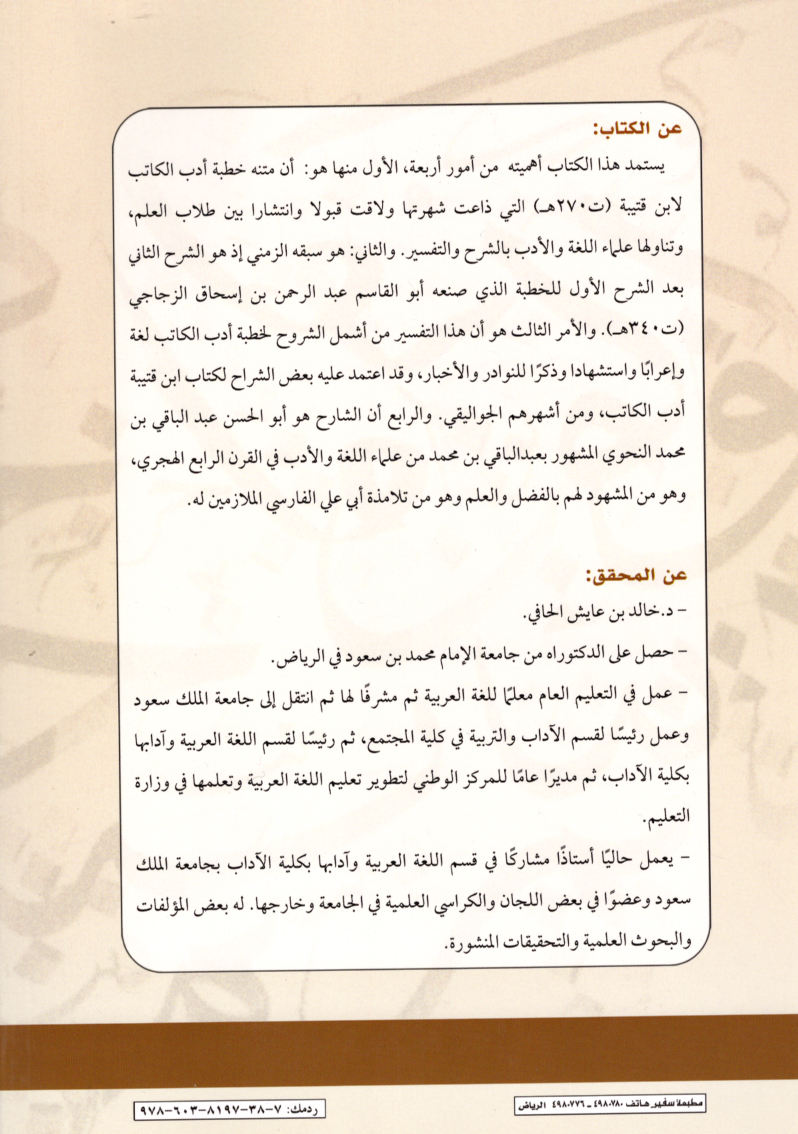 عن الكتاب:
يستمد هذا الكتاب أهميته من أمور أربعة، الأول منها هو: أن متنه خطبة أدب الكاتب
لابن قتيبة (ت٢٧٠هـ) التي ذاعت شهرتها ولاقت قبولا وانتشارا بين طلاب العلم،
وتناولها علماء اللغة والأدب بالشرح والتفسير. والثاني: هو سبقه الزمني إذ هو الشرح الثاني
بعد الشرح الأول للخطبة الذي صنعه أبو القاسم عبد الرحمن بن إسحاق الزجاجي
(ت٣٤٠هـ). والأمر الثالث هو أن هذا التفسير من أشمل الشروح لخطبة أدب الكاتب لغة
وإعرابًا واستشهادا وذكرًا للنوادر والأخبار، وقد اعتمد عليه بعض الشراح لكتاب ابن قتيبة
أدب الكاتب، ومن أشهرهم الجواليقي. والرابع أن الشارح هو أبو الحسن عبد الباقي بن
محمد النحوي المشهور بعبدالباقي بن محمد من علماء اللغة والأدب في القرن الرابع الهجري،
وهو من المشهود لهم بالفضل والعلم وهو من تلامذة أبي علي الفارسي الملازمين له.
عن المحقق:
- د.خالد بن عايش الحافي.
- حصل على الدكتوراه من جامعة الإمام محمد بن سعود في الرياض.
- عمل في التعليم العام معلمًا للغة العربية ثم مشرفًا لها ثم انتقل إلى جامعة الملك سعود
وعمل رئيسًا لقسم الآداب والتربية في كلية المجتمع، ثم رئيسًا لقسم اللغة العربية وآدابها
بكلية الآداب، ثم مديرًا عامًا للمركز الوطني لتطوير تعليم اللغة العربية وتعلمها في وزارة
التعليم.
- يعمل حاليًا أستاذًا مشاركًا في قسم اللغة العربية وآدابها بكلية الآداب بجامعة الملك
سعود وعضوًا في بعض اللجان والكراسي العلمية في الجامعة وخارجها. له بعض المؤلفات
والبحوث العلمية والتحقيقات المنشورة.
مطبعة سفير هاتف ٤٩٨٠٧٨٠ ـ ٤٩٨٠٧٧٦ الرياض
ردمك: ٧-٣٨-٨١٩٧-٦٠٣-٩٧٨